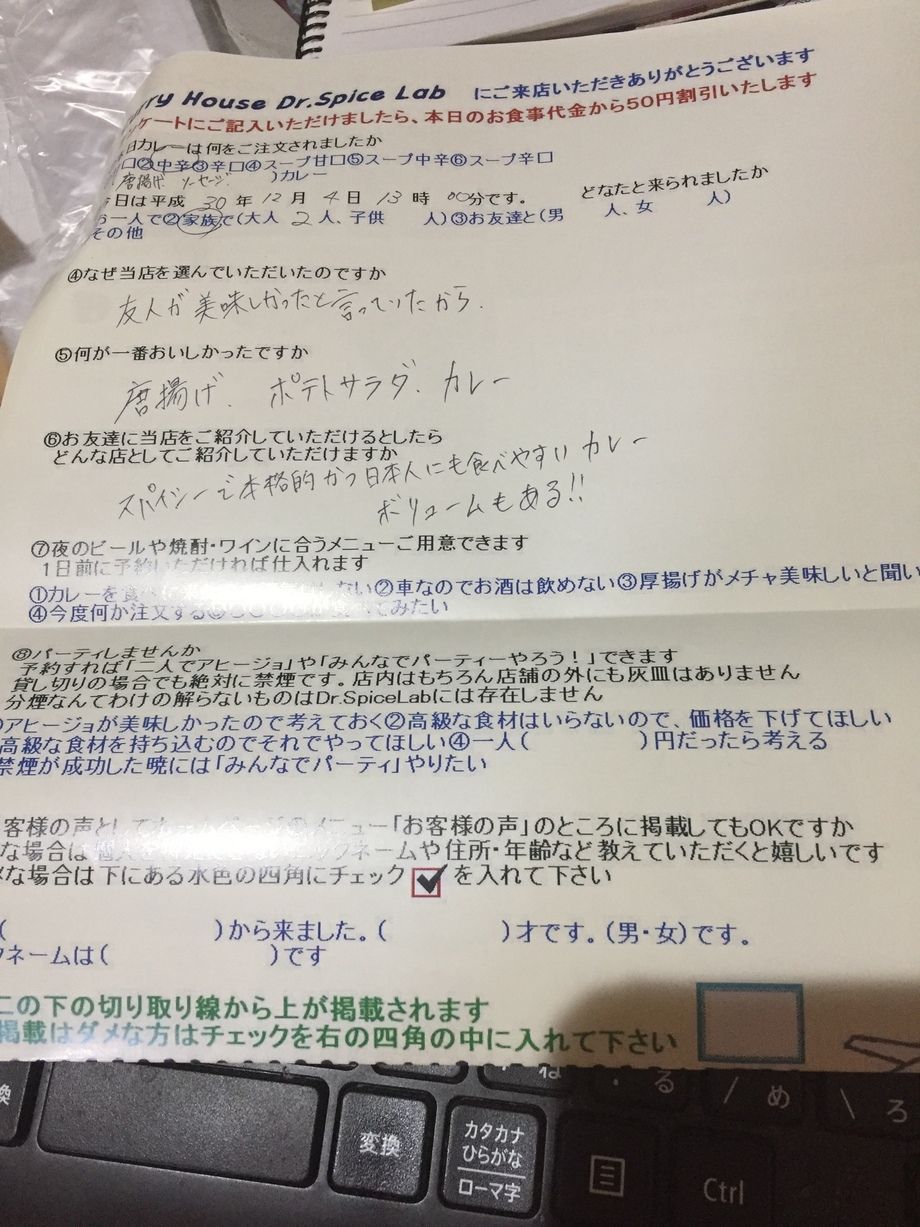 rry House Dr.Spice Lab にご来店いただきありがとうございます
ケートにご記入いただけましたら、本日のお食事代金から50円割引いたします
日カレーは何をご注文されましたか
口②中辛③辛口④スープ甘口⑤スープ中辛⑥スープ辛口
唐揚げ ソーセージ )カレー
今日は平成 30 年 12 月 4 日 13 時 00分です。 どなたと来られましたか
お一人で②家族で(大人 2 人、子供 人)③お友達と(男 人、女 人)
その他
④なぜ当店を選んでいただいたのですか
友人が美味しかったと言っていたから.
⑤何が一番おいしかったですか
唐揚げ、ポテトサラダ、カレー
⑥お友達に当店をご紹介していただけるとしたら
どんな店としてご紹介していただけますか
スパイシーで本格的かつ日本人にも食べやすいカレー
ボリュームもある!!
⑦夜のビールや焼酎・ワインに合うメニューご用意できます
1日前に予約いただければ仕入れます
①カレーを食べ ない②車なのでお酒は飲めない③厚揚げがメチャ美味しいと聞い
④今度何か注文する⑤ てみたい
⑧パーティしませんか
予約すれば「二人でアヒージョ」や「みんなでパーティーやろう!」できます
貸し切りの場合でも絶対に禁煙です。店内はもちろん店舗の外にも灰皿はありません
分煙なんてわけの解らないものはDr.SpiceLabには存在しません
アヒージョが美味しかったので考えておく②高級な食材はいらないので、価格を下げてほしい
高級な食材を持ち込むのでそれでやってほしい④一人( )円だったら考える
禁煙が成功した暁には「みんなでパーティ」やりたい
客様の声として メニュー「お客様の声」のところに掲載してもOKですか
な場合は個人を ックネームや住所・年齢など教えていただくと嬉しいです
メな場合は下にある水色の四角にチェック を入れて下さい
( )から来ました。( )才です。(男・女)です。
クネームは( )です
この下の切り取り線から上が掲載されます
掲載はダメな方はチェックを右の四角の中に入れて下さい
ね
・ る
/ め
\ ろ
換
変換
カタカナ
ひらがな
ローマ字
Ctrl